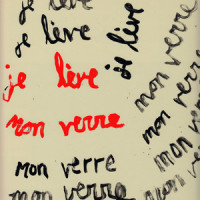 je lève
je lève
je lève
je lève
mon verre
mon verre
mon verre
mon verre
mon verre
mon verre
mon verre
mon verre